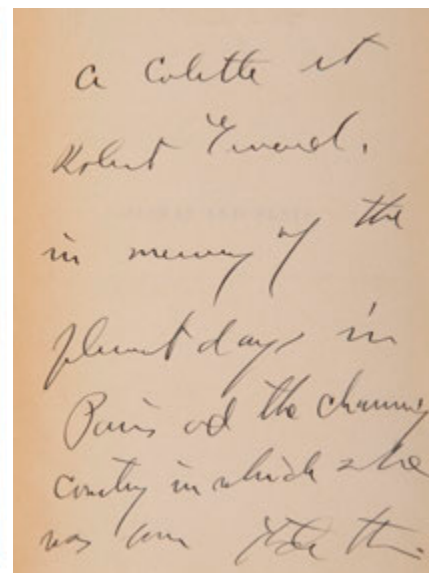 a Colette et
Robert
in memory of the
pleasant days in
Paris and the charming
country in which she
was born